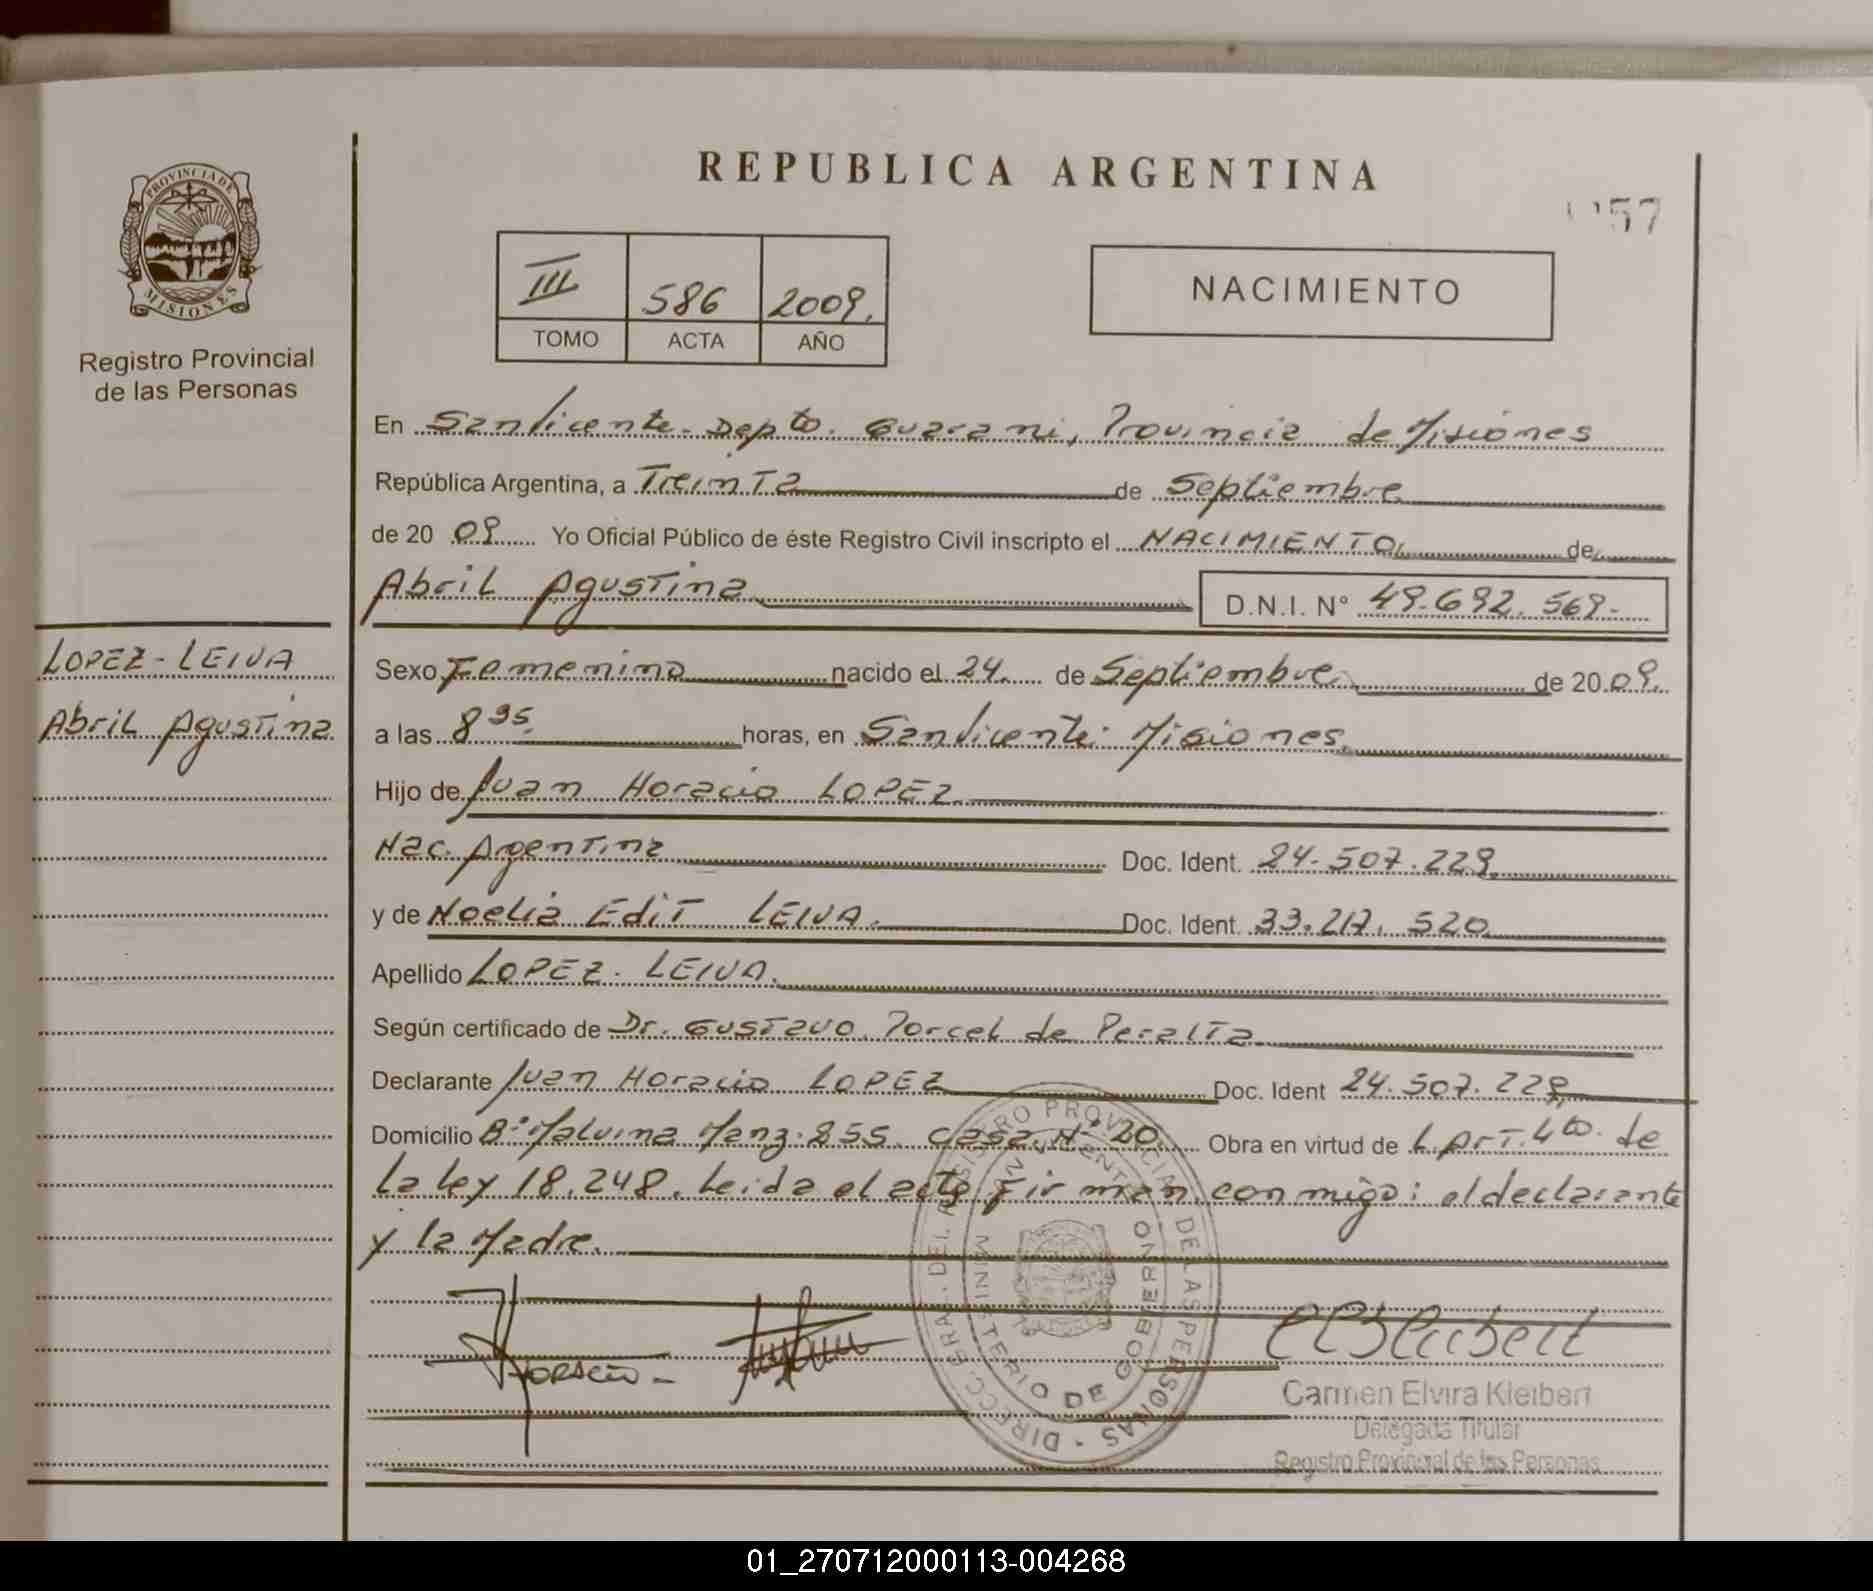 REPUBLICA ARGENTINA
57
PROVINCIA DE MISIONES
Registro Provincial
de las Personas
III 586 2009.
TOMO ACTA AÑO
NACIMIENTO
En San Vicente. Depto. Guarani, Provincia de Misiones
República Argentina, a Treinta de Septiembre
de 20 09 Yo Oficial Público de éste Registro Civil inscripto el NACIMIENTO de
Abril Agustina D.N.I. Nº 49.692.569.
LOPEZ - LEIVA
Abril Agustina
Sexo Femenino nacido el 24 de Septiembre de 20 09.
a las 8 35 horas, en San Vicente. Misiones
Hijo de Juan Horacio LOPEZ
Nac. Argentina Doc. Ident. 24.507.229
y de Noelia Edit LEIVA. Doc. Ident. 33.217.520
Apellido LOPEZ - LEIVA.
Según certificado de Dr. Gustavo Porcel de Peralta
Declarante Juan Horacio LOPEZ Doc. Ident 24.507.229
Domicilio Bº Malvina Manz. 255. casa Nº 20. Obra en virtud de L. Art. 4to. de
la ley 18.248. Leida el acta firman conmigo: el declarante
y la Madre.
DIRECC. GRAL. DEL REGISTRO PROVINCIAL DE LAS PERSONAS
MINISTERIO DE GOBIERNO
Horacio
Carmen Elvira Kleibert
Delegada Titular
Registro Provincial de las Personas
01_270712000113-004268